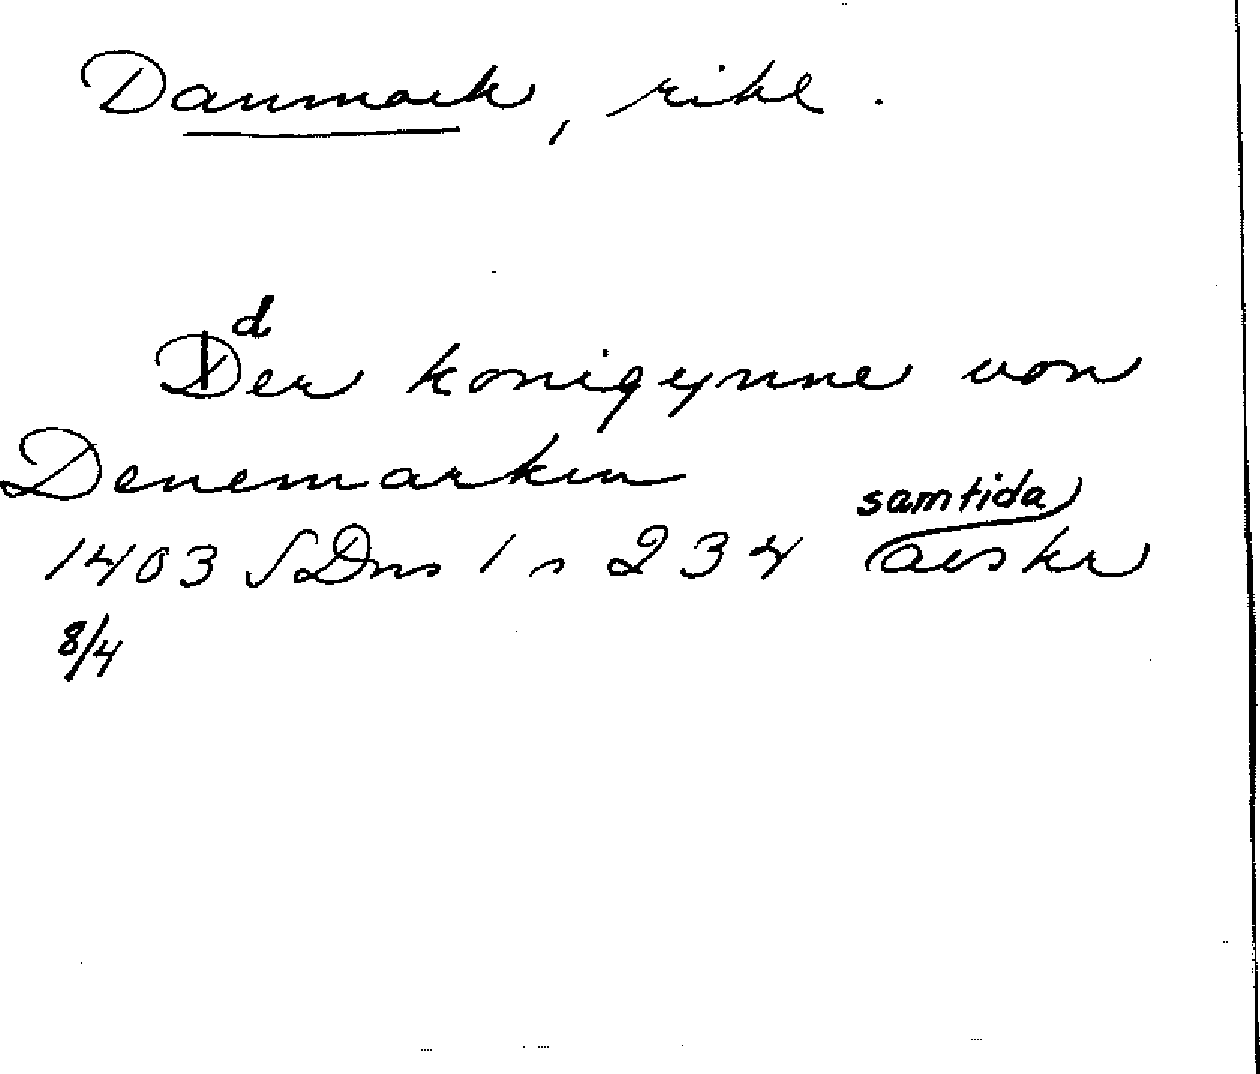 Danmark, rike.
der konigynne von
Denemarken
1403 SDns 1 s 234 samtida avskr
8/4